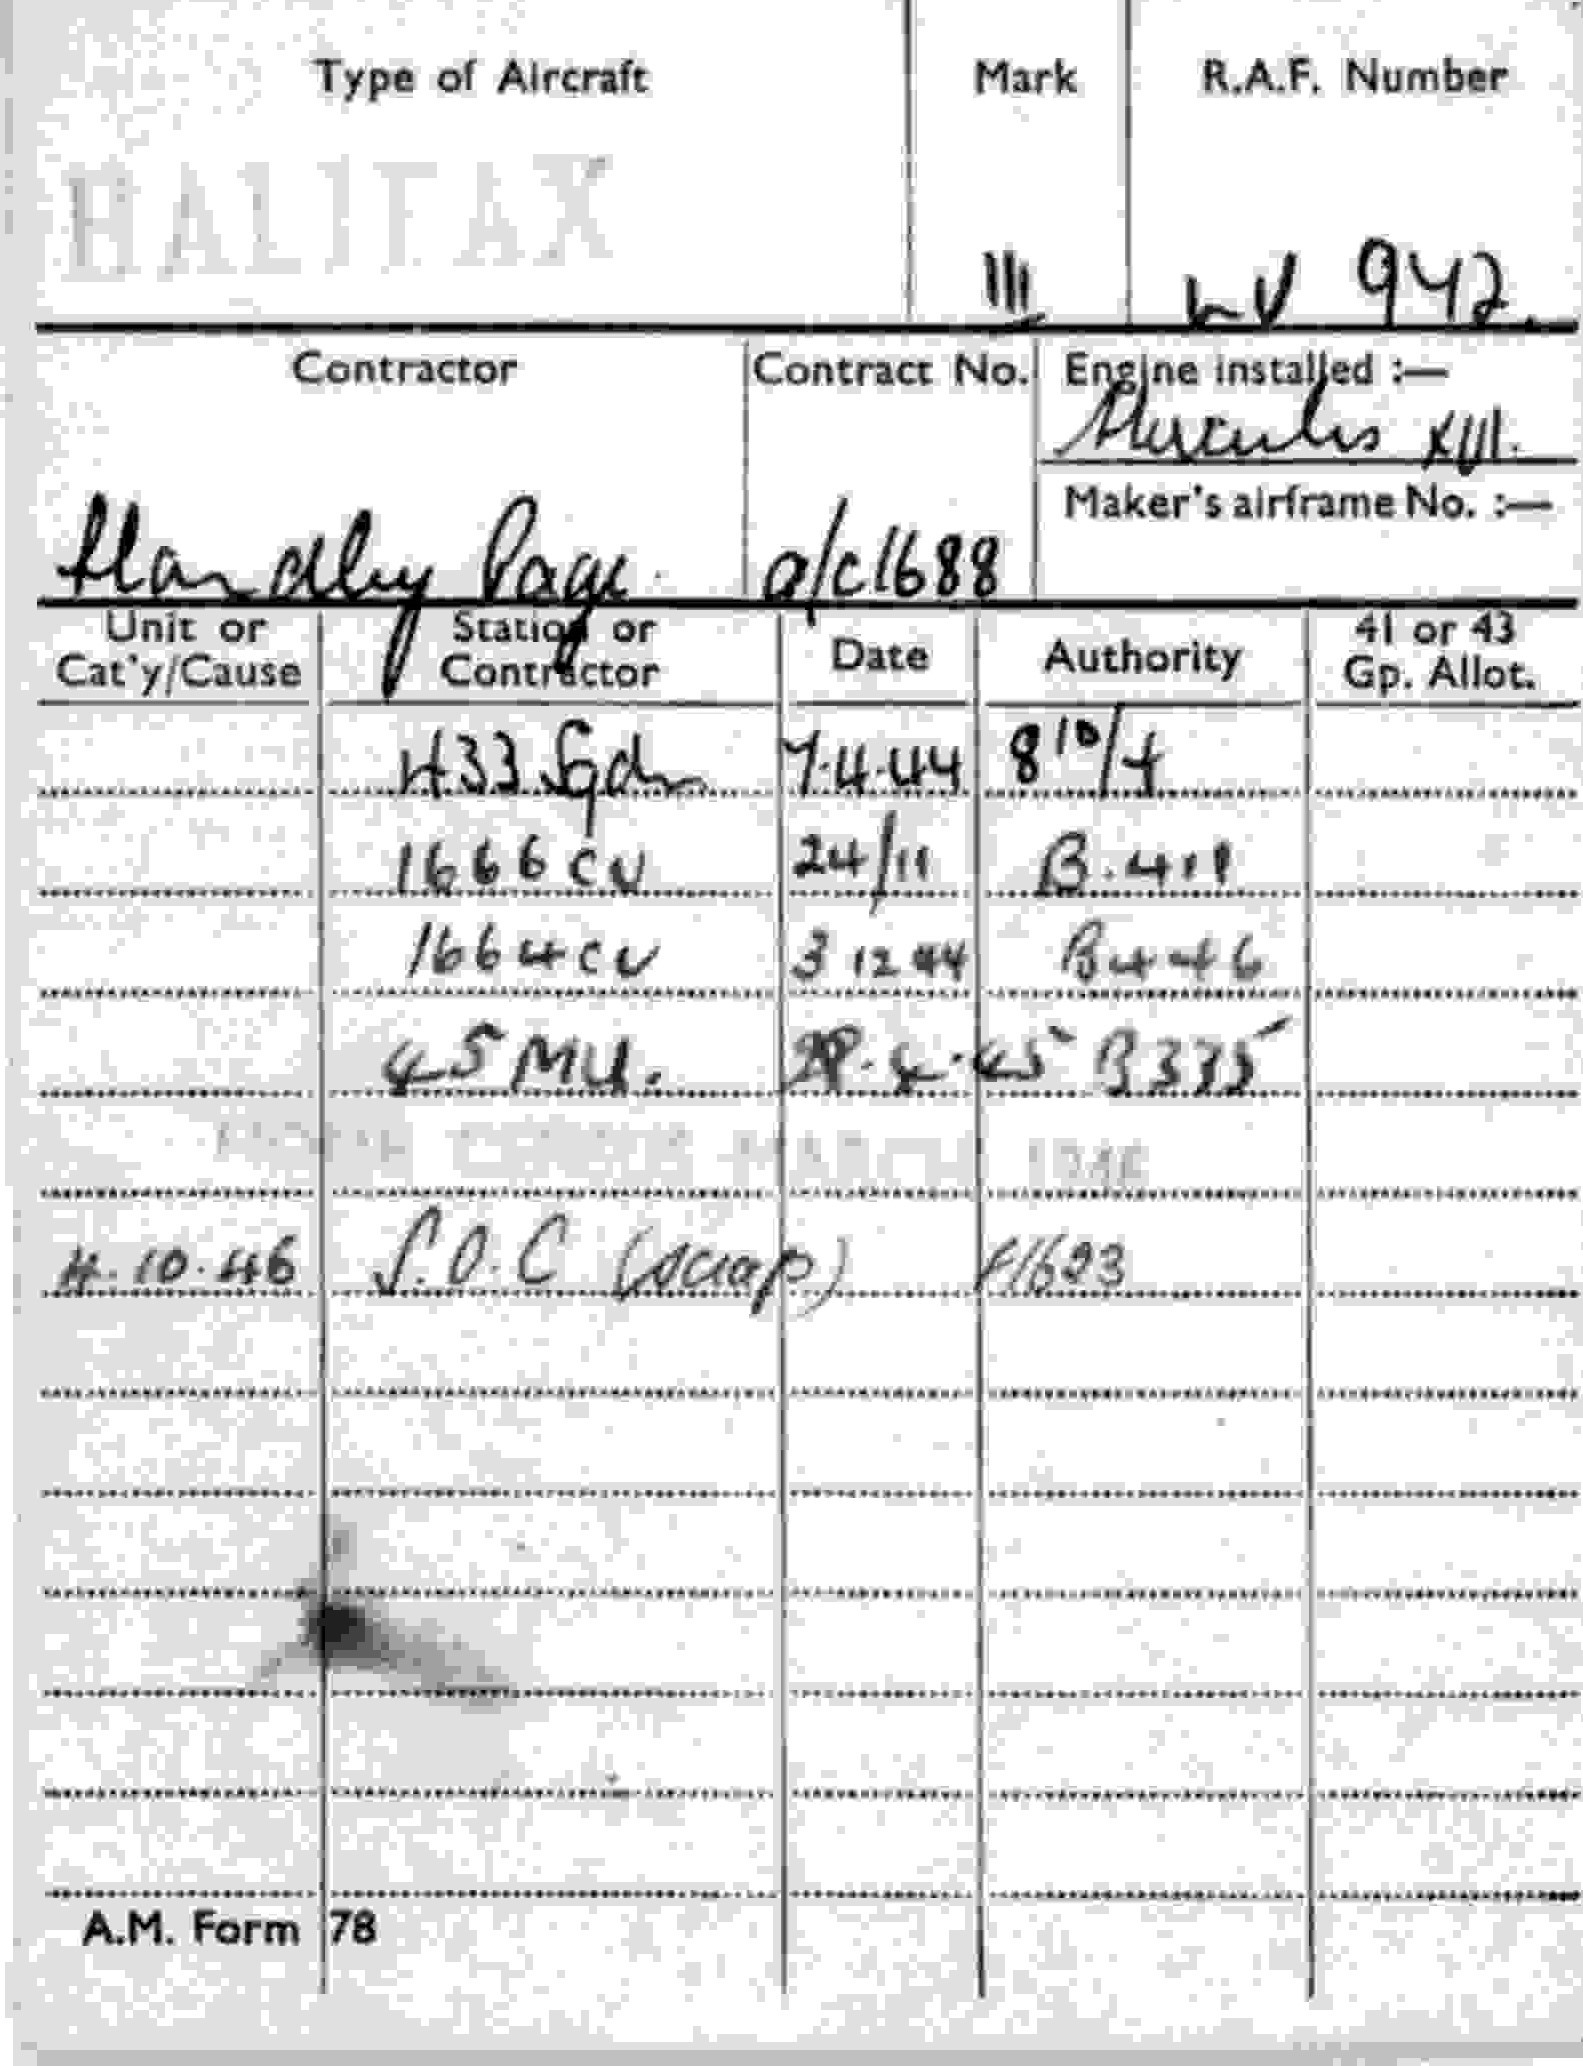 Type of Aircraft Mark R.A.F. Number
HALIFAX III LV 942.
Contractor Contract No. Engine installed :—
Hercules XVI.
Maker's airframe No. :—
Handley Page. a/c1688
Unit or Cat'y/Cause Station or Contractor Date Authority 41 or 43 Gp. Allot.
433 Sqdn 7.4.44 8 10/4
1666 CU 24/11 B.411
1664 CU 3 12 44 B446
45 MU. 4.45 B335
CENSUS MARCH 1946
4.10.46 S.O.C (scrap) F1623
A.M. Form 78